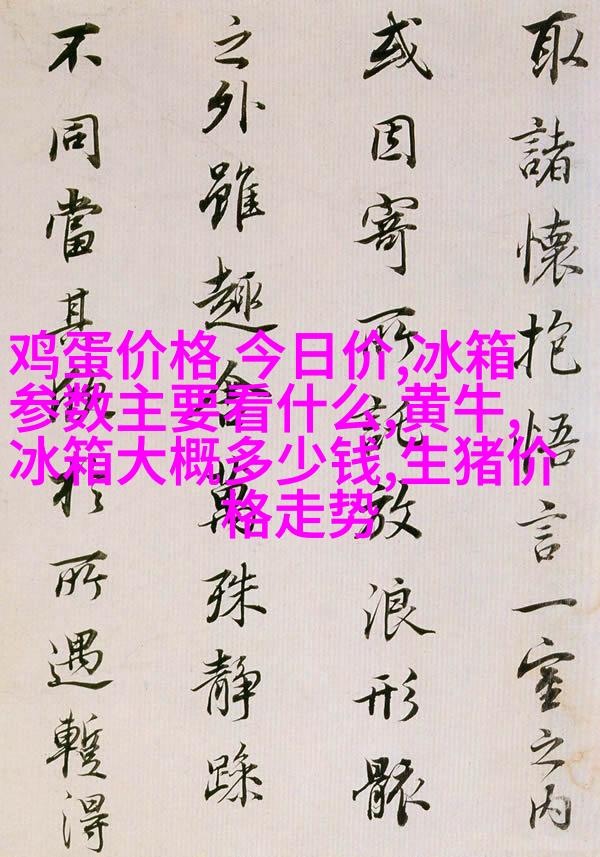 鸡蛋价格 今日价,冰箱
参数主要看什么,黄牛,
冰箱大概多少钱,生猪价
格走势
取諸懷抱悟言一室之内
或因寄所託放浪形骸
之外雖趣舍萬殊靜躁
不同當其欣於所遇蹔得